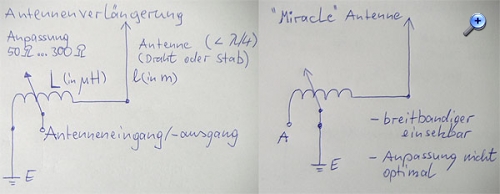 Antennenverlängerung
Anpassung
50Ω...300Ω
L (in µH)
Antenne (< λ/4)
(Draht oder Stab)
l (in m)
Antenneneingang/-ausgang
E
"Miracle" Antenne
A
E
- breitbandiger
einsetzbar
- Anpassung nicht
optimal